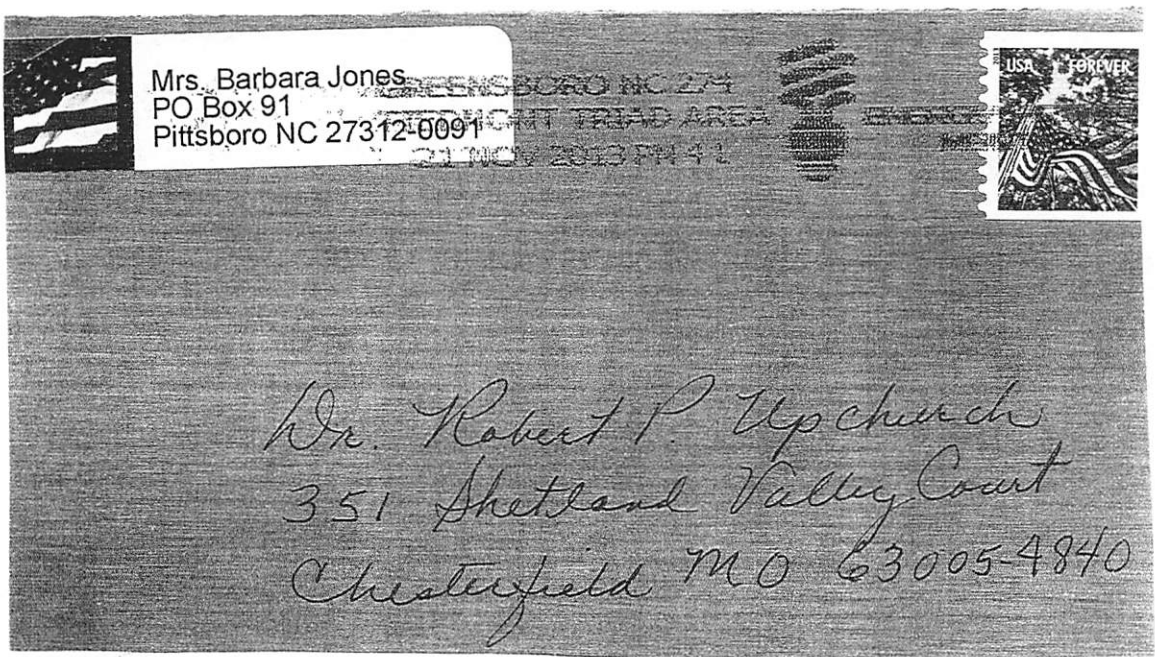 Mrs. Barbara Jones
PO Box 91
Pittsboro NC 27312-0091
GREENSBORO NC 274
PIEDMONT TRIAD AREA
21 NOV 2013 PM 4 L
USA FOREVER
Dr. Robert P. Upchurch
351 Shetland Valley Court
Chesterfield MO 63005-4840